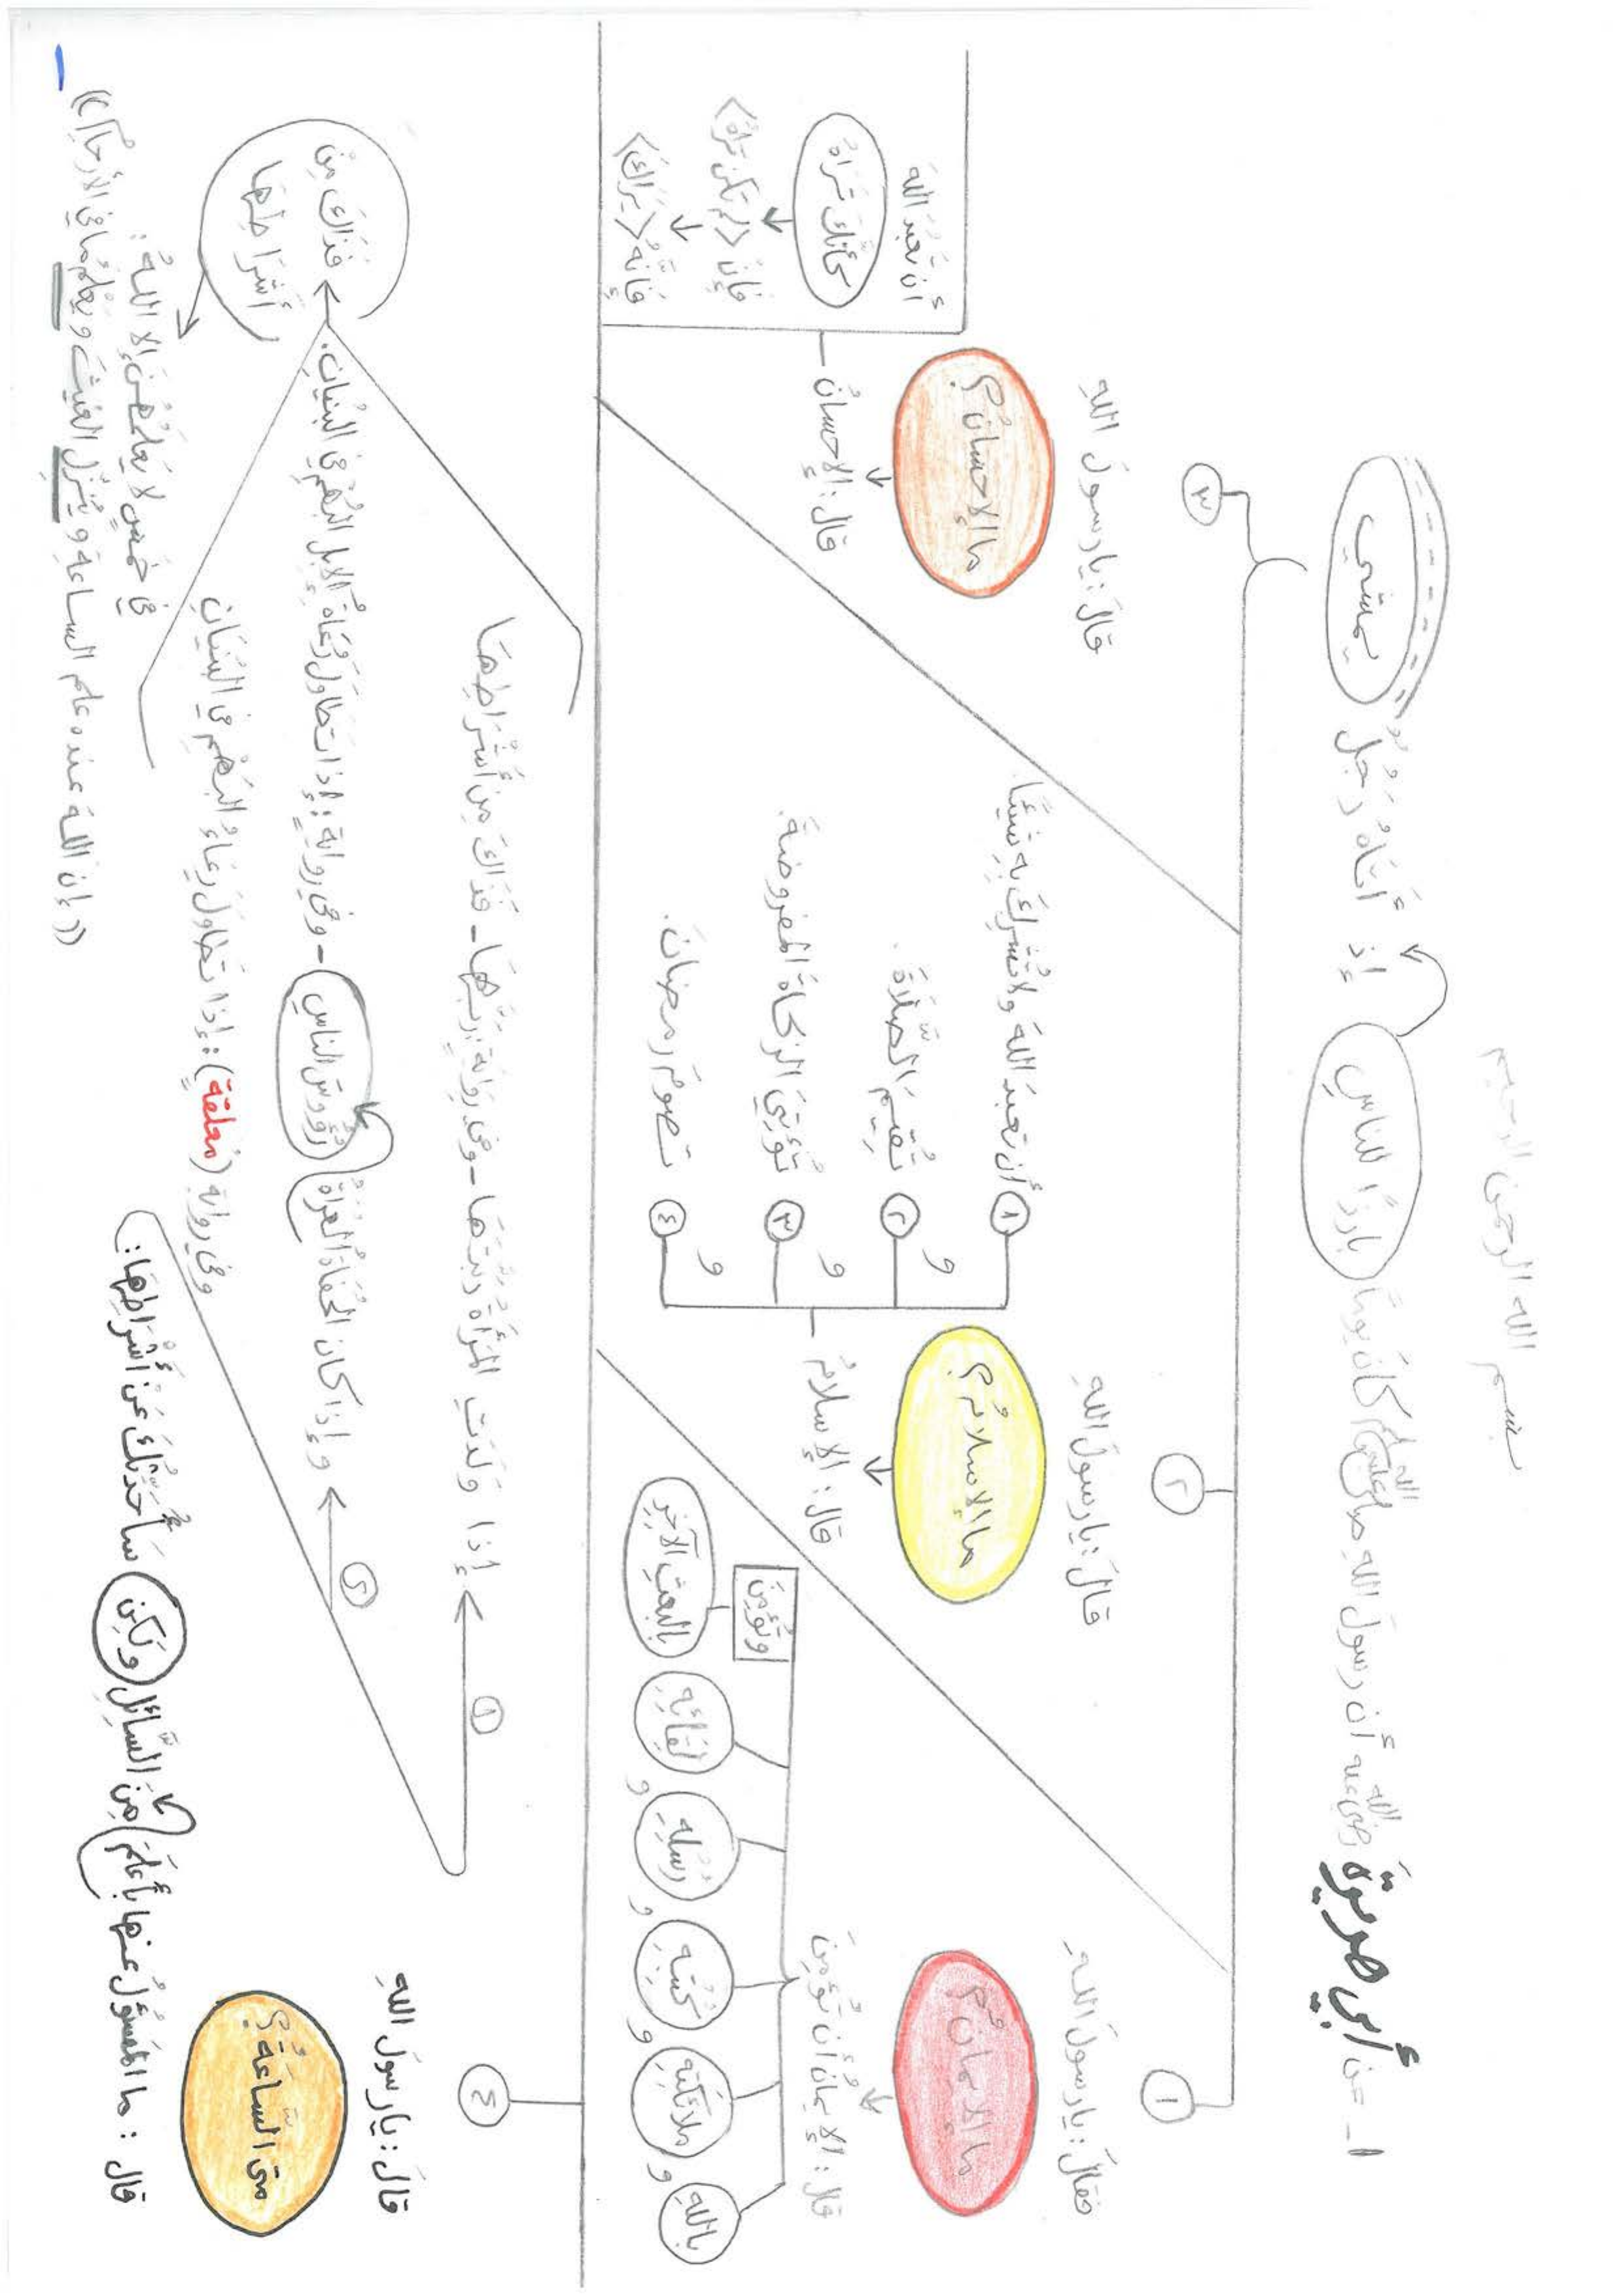 بسم الله الرحمن الرحيم
١- عن أبي هريرة رضي الله عنه أن رسولَ الله صلى الله عليه وسلم كانَ يومًا بارزًا للناسِ إذ أتاهُ رَجُلٌ يمشي
١
فقالَ: يا رسولَ اللهِ
ما الإيمانُ؟
قالَ: الإيمانُ أن تؤمنَ
باللهِ
و ملائكتِهِ
و كُتبِهِ
و رُسلِهِ
و لقائِهِ
وتؤمنَ
بالبعثِ الآخِرِ
٢
قالَ: يا رسولَ اللهِ
ما الإسلامُ؟
قال: الإسلامُ
١ أن تعبدَ اللهَ ولا تُشرِكَ بِهِ شيئًا.
و
٢ تُقِيمَ الصَّلاةَ.
و
٣ تُؤتيَ الزكاةَ المفروضةَ.
و
٤ تصومَ رمضانَ.
٣
قالَ: يا رسولَ اللهِ
ما الإحسانُ؟
قال: الإحسانُ
أن تعبدَ اللهَ
كأنَّكَ تَراهُ
فإن لم تكن تراهُ
فإنَّهُ يَراكَ
٤
قالَ: يا رسولَ اللهِ
متى السَّاعةُ؟
قال: ما المسؤولُ عنها بأعلمَ مِنَ السَّائلِ ولكِن سأُحَدِّثُكَ عَنْ أَشْرَاطِهَا:
١
إذا وَلَدَتِ المَرْأَةُ رَبَّتَهَا - وفي روايةٍ رَبَّهَا - فذاكَ مِن أَشْرَاطِهَا
٢
وإذا كان الحُفَاةُ العُرَاةُ رُؤُوسَ الناسِ - وفي روايةٍ: إذا تطاولَ رُعَاةُ الإبلِ البُهْمُ في البُنْيانِ.
وفي رواية (معلقةٍ): إذا تطاولَ رِعَاءُ البَهْمِ في البُنْيَانِ
فَذَاكَ مِنْ
أَشْرَاطِهَا
في خَمْسٍ لا يَعلَمُهُنَّ إلا اللهُ:
((إن اللهَ عنده علم الساعةِ و يُنَزِّل الغيثَ و يَعْلَمُ ما في الأرحَامِ))